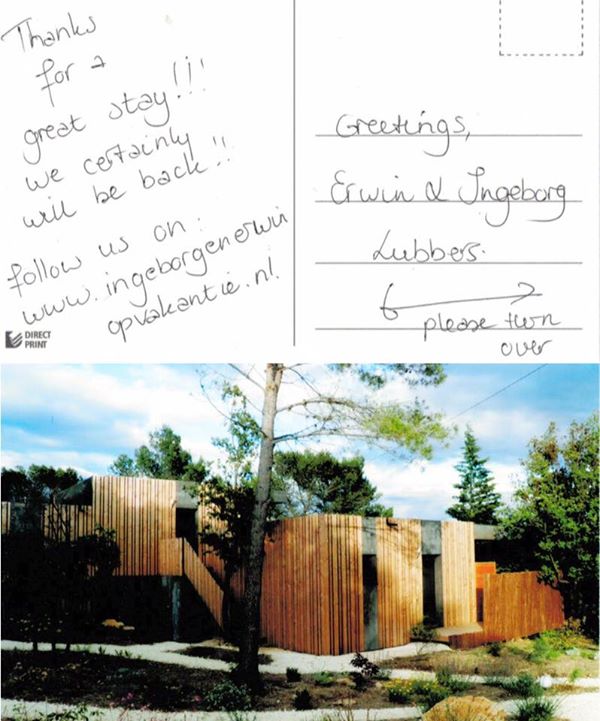 Thanks
for a
great stay!!!
we certainly
will be back!!
follow us on:
www.ingeborgenerwin
opvakantie.nl.
DIRECT
PRINT
Greetings,
Erwin & Ingeborg
Lubbers.
please turn
over